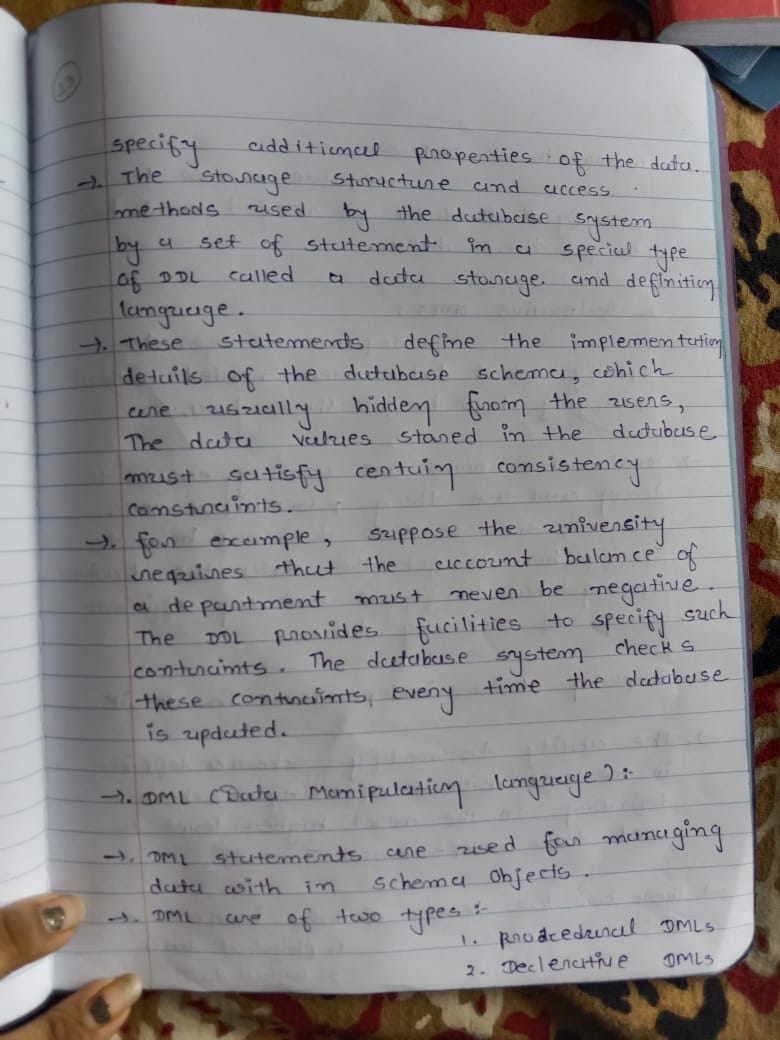 23
specify additional properties of the data.
→. The storage structure and access
methods used by the database system
by a set of statement in a special type
of DDL called a data storage. and definition
language.
→. These statements define the implementation
details of the database schema, which
are usually hidden from the users,
The data values stored in the database
must satisfy certain consistency
constraints.
→. for example, suppose the university
requires that the account balance of
a department must never be negative.
The DDL provides facilities to specify such
contraints. The database system checks
these contraints, every time the database
is updated.
→. DML (Data Manipulation language) :-
→. DML statements are used for managing
data with in schema objects.
→. DML are of two types :-
1. Proocedural DMLs
2. Declerative DMLs